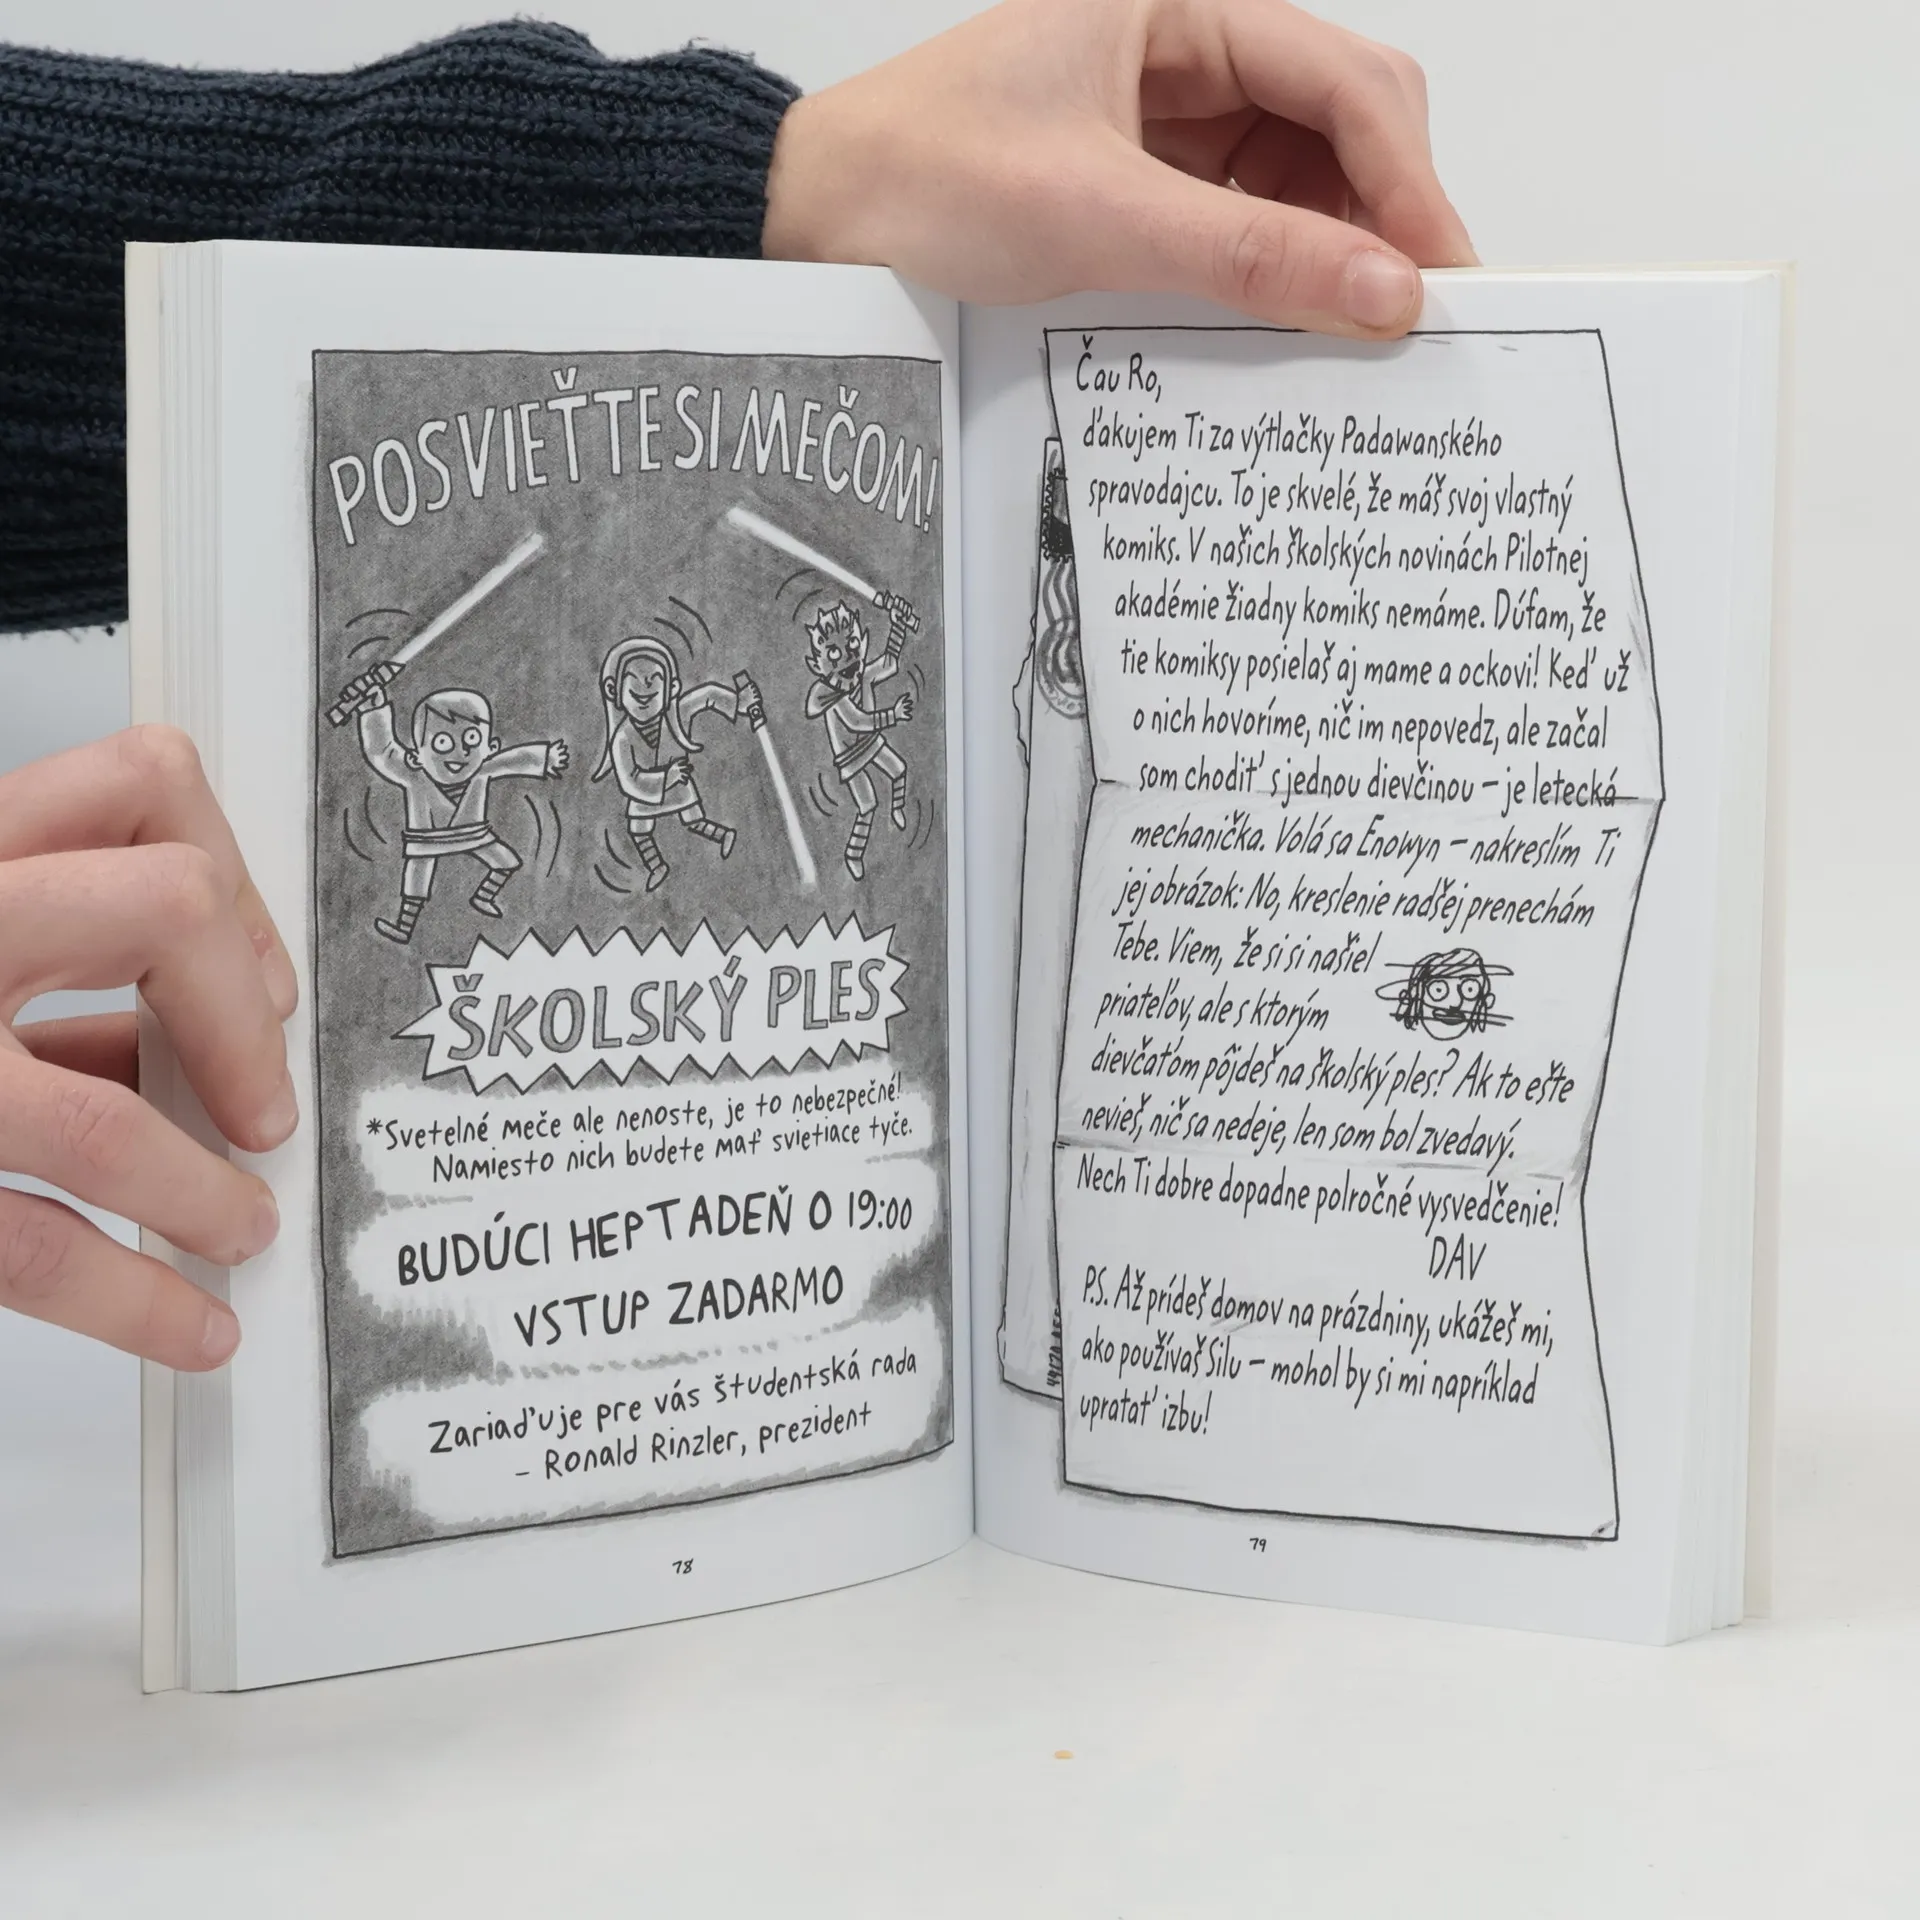 POSVIEŤTE SI MEČOM!
ŠKOLSKÝ PLES
*Svetelné meče ale nenoste, je to nebezpečné!
Namiesto nich budete mať svietiace tyče.
BUDÚCI HEPTADEŇ O 19:00
VSTUP ZADARMO
Zariaďuje pre vás študentská rada
– Ronald Rinzler, prezident
78
Čau Ro,
ďakujem Ti za výtlačky Padawanského
spravodajcu. To je skvelé, že máš svoj vlastný
komiks. V našich školských novinách Pilotnej
akadémie žiadny komiks nemáme. Dúfam, že
tie komiksy posielaš aj mame a ockovi! Keď už
o nich hovoríme, nič im nepovedz, ale začal
som chodiť s jednou dievčinou – je letecká
mechanička. Volá sa Enowyn – nakreslím Ti
jej obrázok: No, kreslenie radšej prenechám
Tebe. Viem, že si si našiel
priateľov, ale s ktorým
dievčaťom pôjdeš na školský ples? Ak to ešte
nevieš, nič sa nedeje, len som bol zvedavý.
Nech Ti dobre dopadne polročné vysvedčenie!
DAV
P.S. Až prídeš domov na prázdniny, ukážeš mi,
ako používaš Silu – mohol by si mi napríklad
upratať izbu!
79